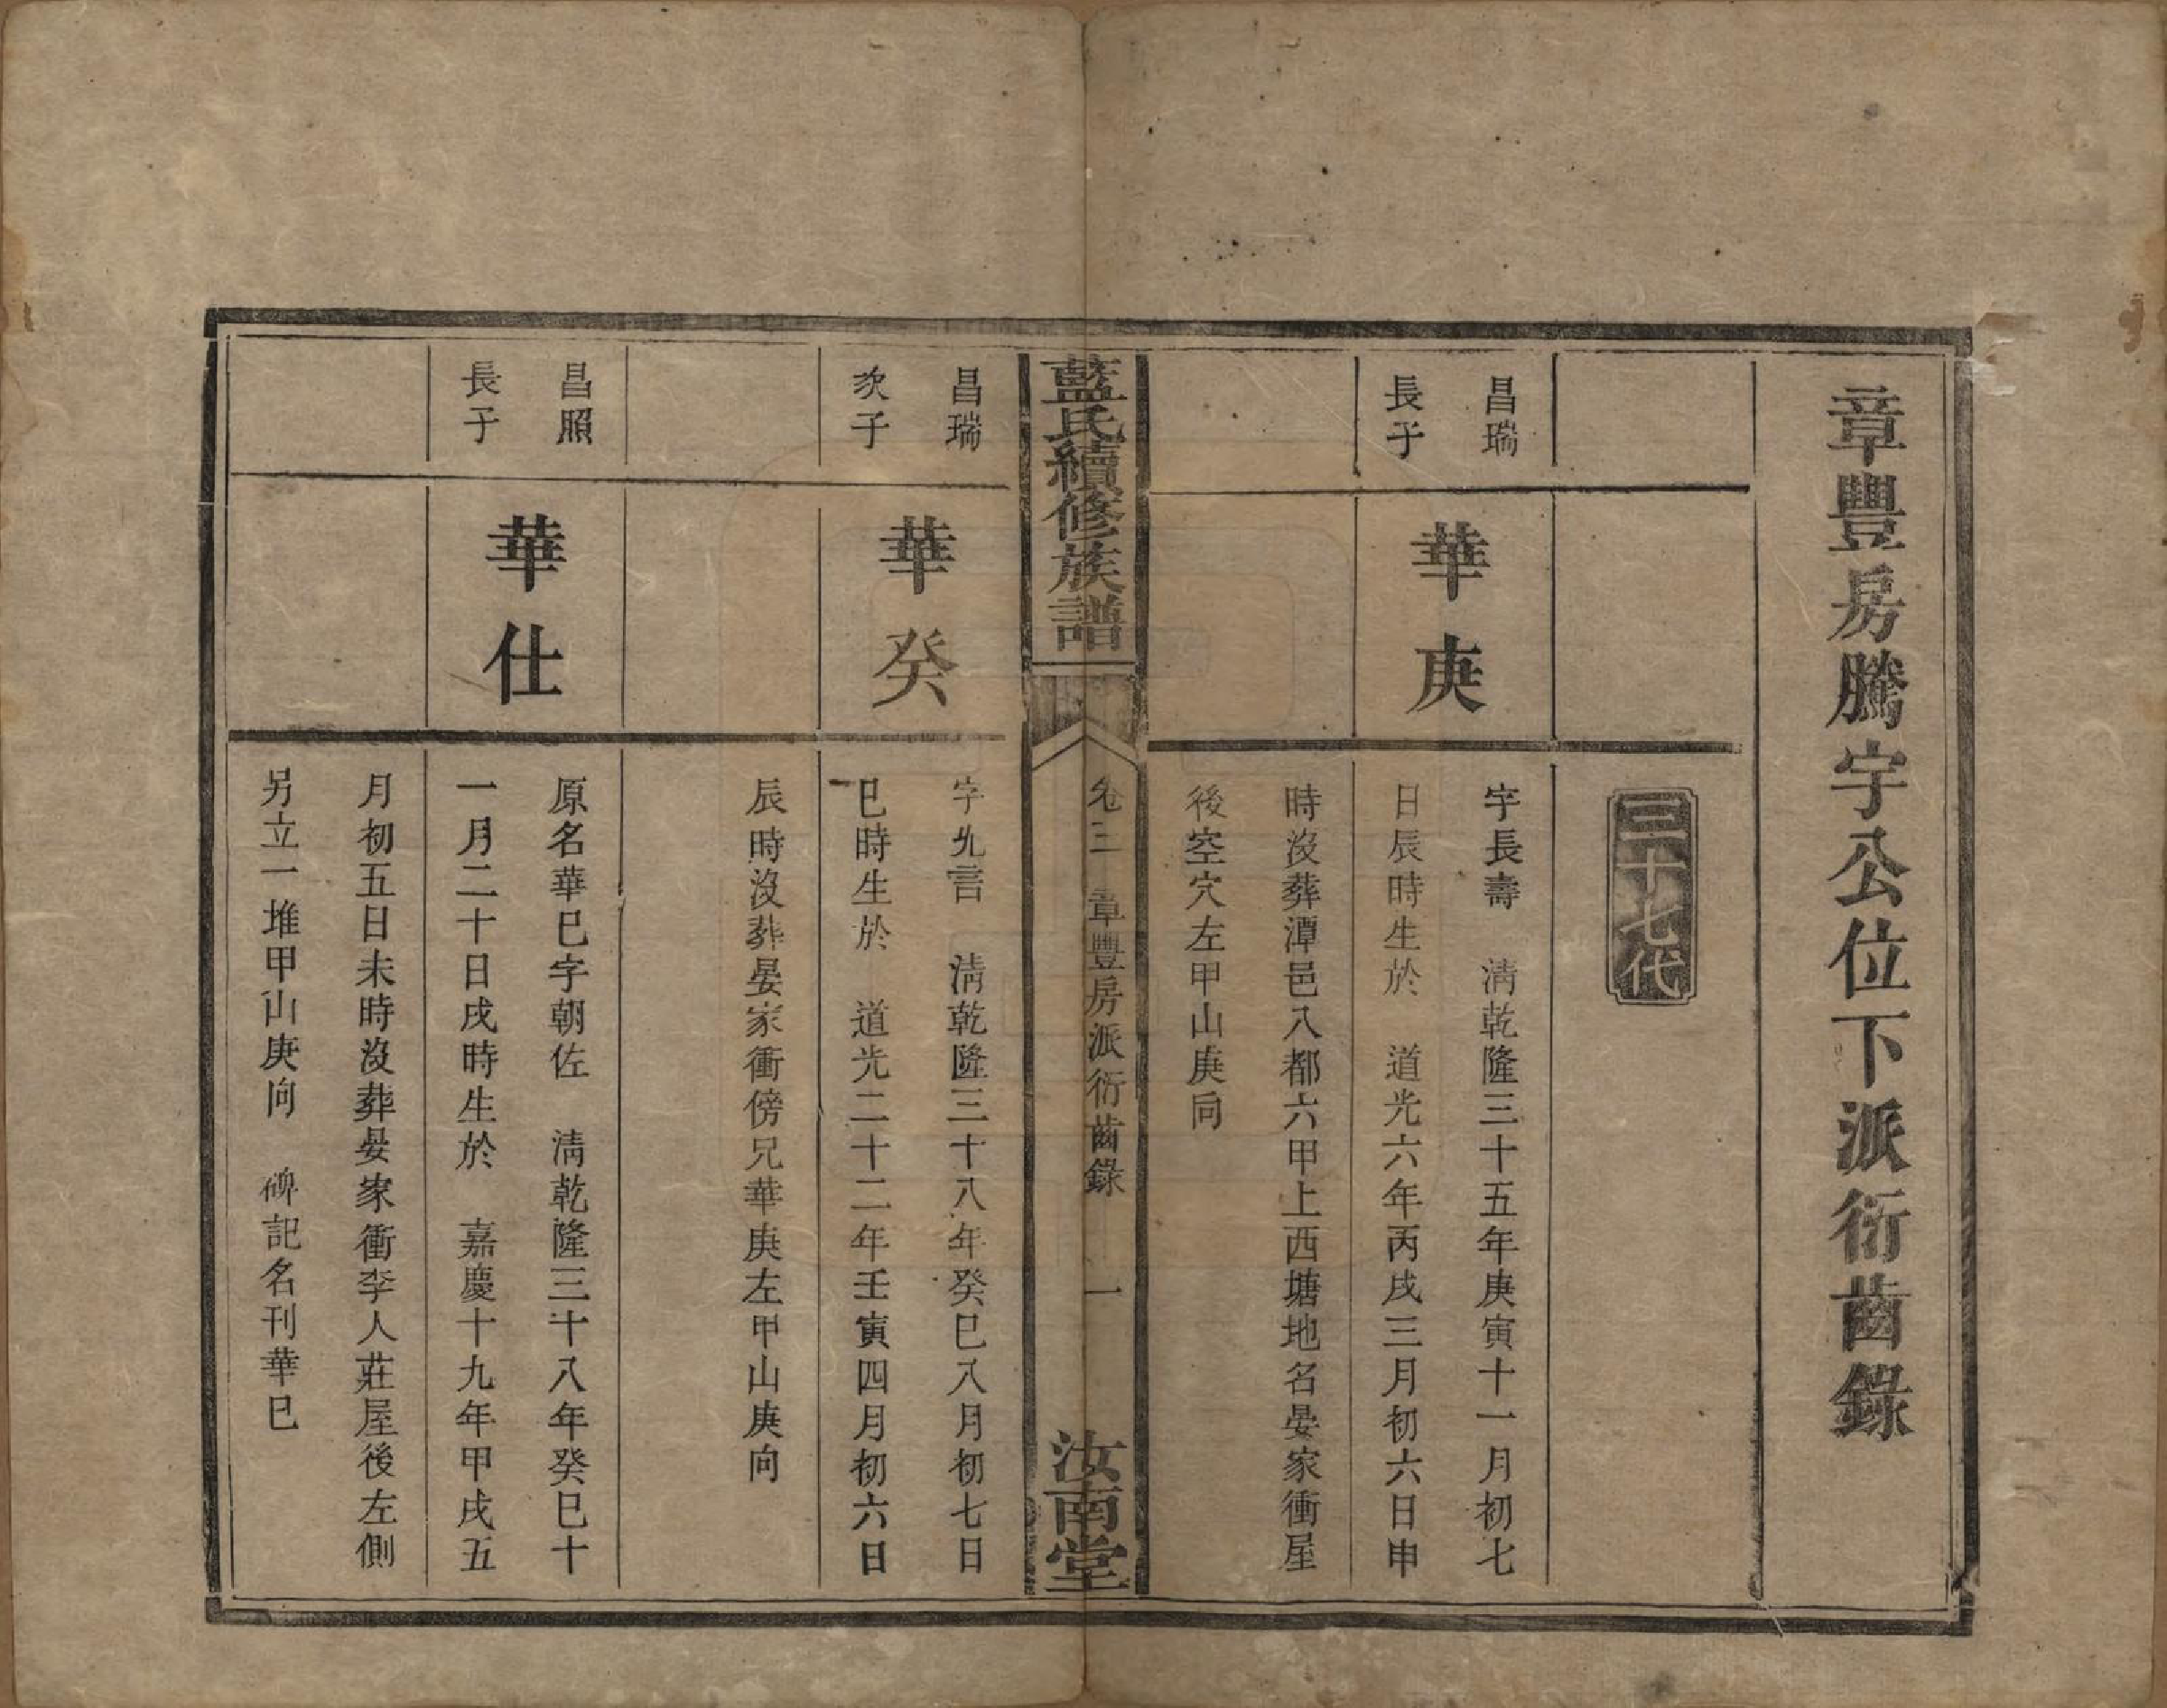 章豐房騰宇公位下派衍齒錄
三十七代
昌瑞
長子
華庚
字長壽　清乾隆三十五年庚寅十一月初七
日辰時生於　道光六年丙戌三月初六日申
時沒葬潭邑八都六甲上西塘地名晏家衝屋
後空穴左甲山庚向
藍氏續修族譜
卷三　章豐房派衍齒錄　一
汝南堂
昌瑞
次子
華癸
字九言　清乾隆三十八年癸巳八月初七日
巳時生於　道光二十二年壬寅四月初六日
辰時沒葬晏家衝傍兄華庚左甲山庚向
昌照
長子
華仕
原名華巳字朝佐　清乾隆三十八年癸巳十
一月二十日戌時生於　嘉慶十九年甲戌五
月初五日未時沒葬晏家衝李人莊屋後左側
另立一堆甲山庚向　碑記名刊華巳